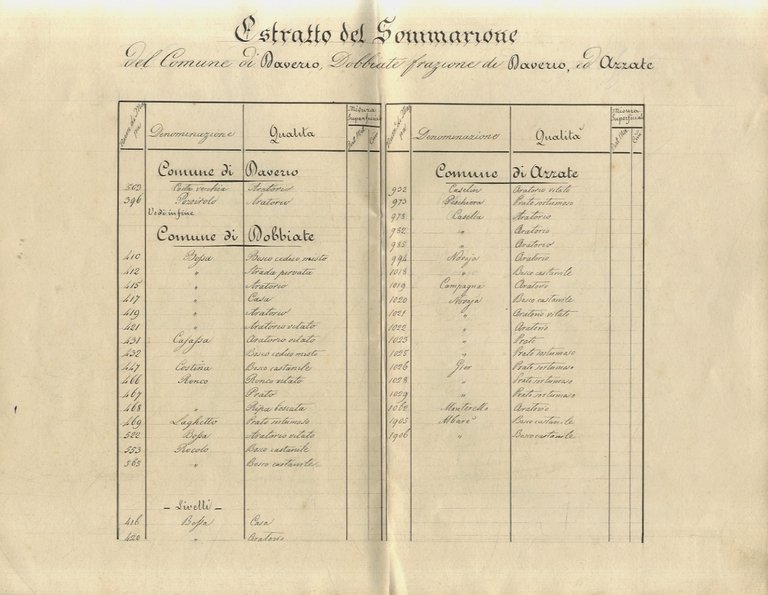 Estratto del Sommarione
del Comune di Daverio, Dobbiate frazione di Daverio, ed Azzate
Denominazione Qualità Misura Superficiale
Comune di Daverio
Costa vecchia Aratorio
396 Aratorio
Vedi in fine
Comune di Dobbiate
410 Bossa Bosco ceduo misto
412 " Strada privata
415 " Aratorio
417 " Casa
419 " Aratorio
421 " Aratorio vitato
431 Aratorio vitato
432 Bosco ceduo misto
447 Costina Bosco castanile
466 Ronco Ronco vitato
467 Prato
468 " Ripa boscata
469 Laghetto Prato sortumoso
522 Bossa Aratorio vitato
553 Rocolo Bosco castanile
565 " Bosco castanile
- Livelli -
416 Bossa Casa
420 " Aratorio
Denominazione Qualità Misura Superficiale
Comune di Azzate
932 Aratorio vitato
973 Peschiera Prato sortumoso
978 Casella Aratorio
982 " Aratorio
985 " Aratorio
994 Aratorio
1018 " Bosco castanile
1019 Campagna Aratorio
1020 Bosco castanile
1021 " Aratorio vitato
1022 " Aratorio
1023 " Prato
1025 " Prato sortumoso
1026 Gior Prato sortumoso
1028 " Prato sortumoso
1029 " Prato sortumoso
1062 Monterello Aratorio
1905 Albarè Bosco castanile
1906 " Bosco castanile